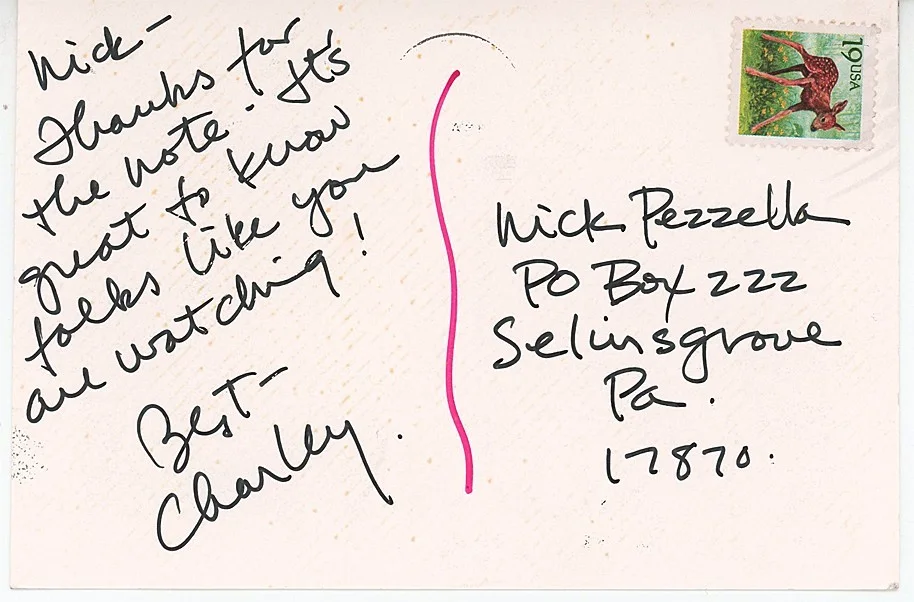 Nick-
Thanks for
the note. It's
great to know
folks like you
are watching!
Best-
Charley.
19USA
Nick Pezzella
PO Box 222
Selinsgrove
Pa.
17870.